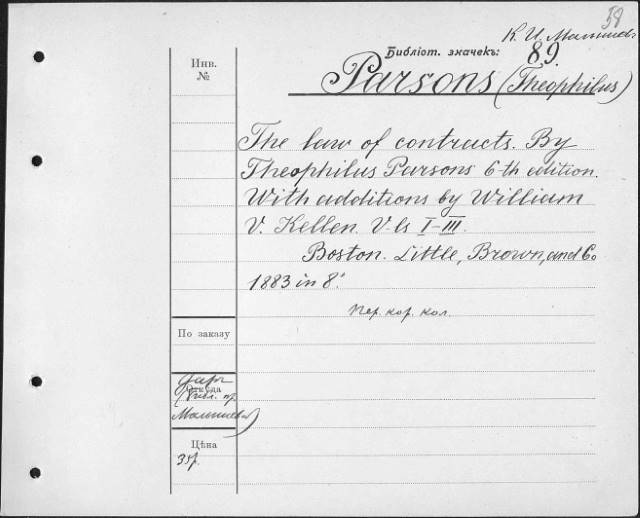 58
К. И. Малышев
Библіот. значекъ: 89.
Инв.
№
Parsons (Theophilus)
The law of contracts. By
Theophilus Parsons 6th edition.
With additions by William
V. Kellen. V-ls I-III.
Boston. Little, Brown, and Co
1883 in 8°.
пер. кор. кол.
По заказу
Даръ
Откуда
(библ. пр.
Малышева)
Цѣна
35р.